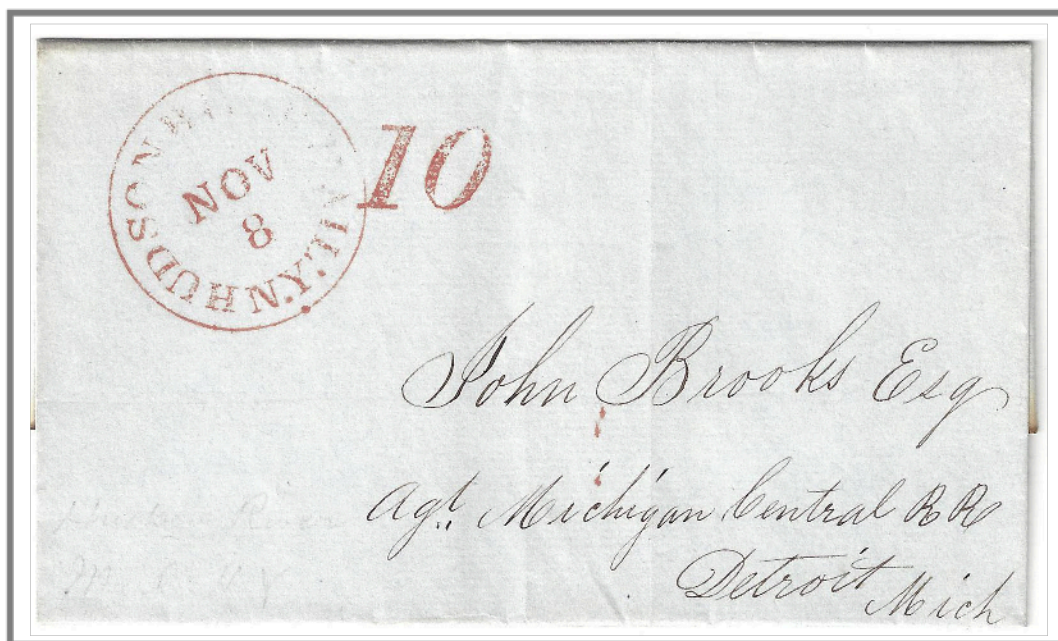 HUDSON RIVER MAIL N.Y.
NOV
8
10
John Brooks Esq
Agt. Michigan Central RR
Detroit Mich